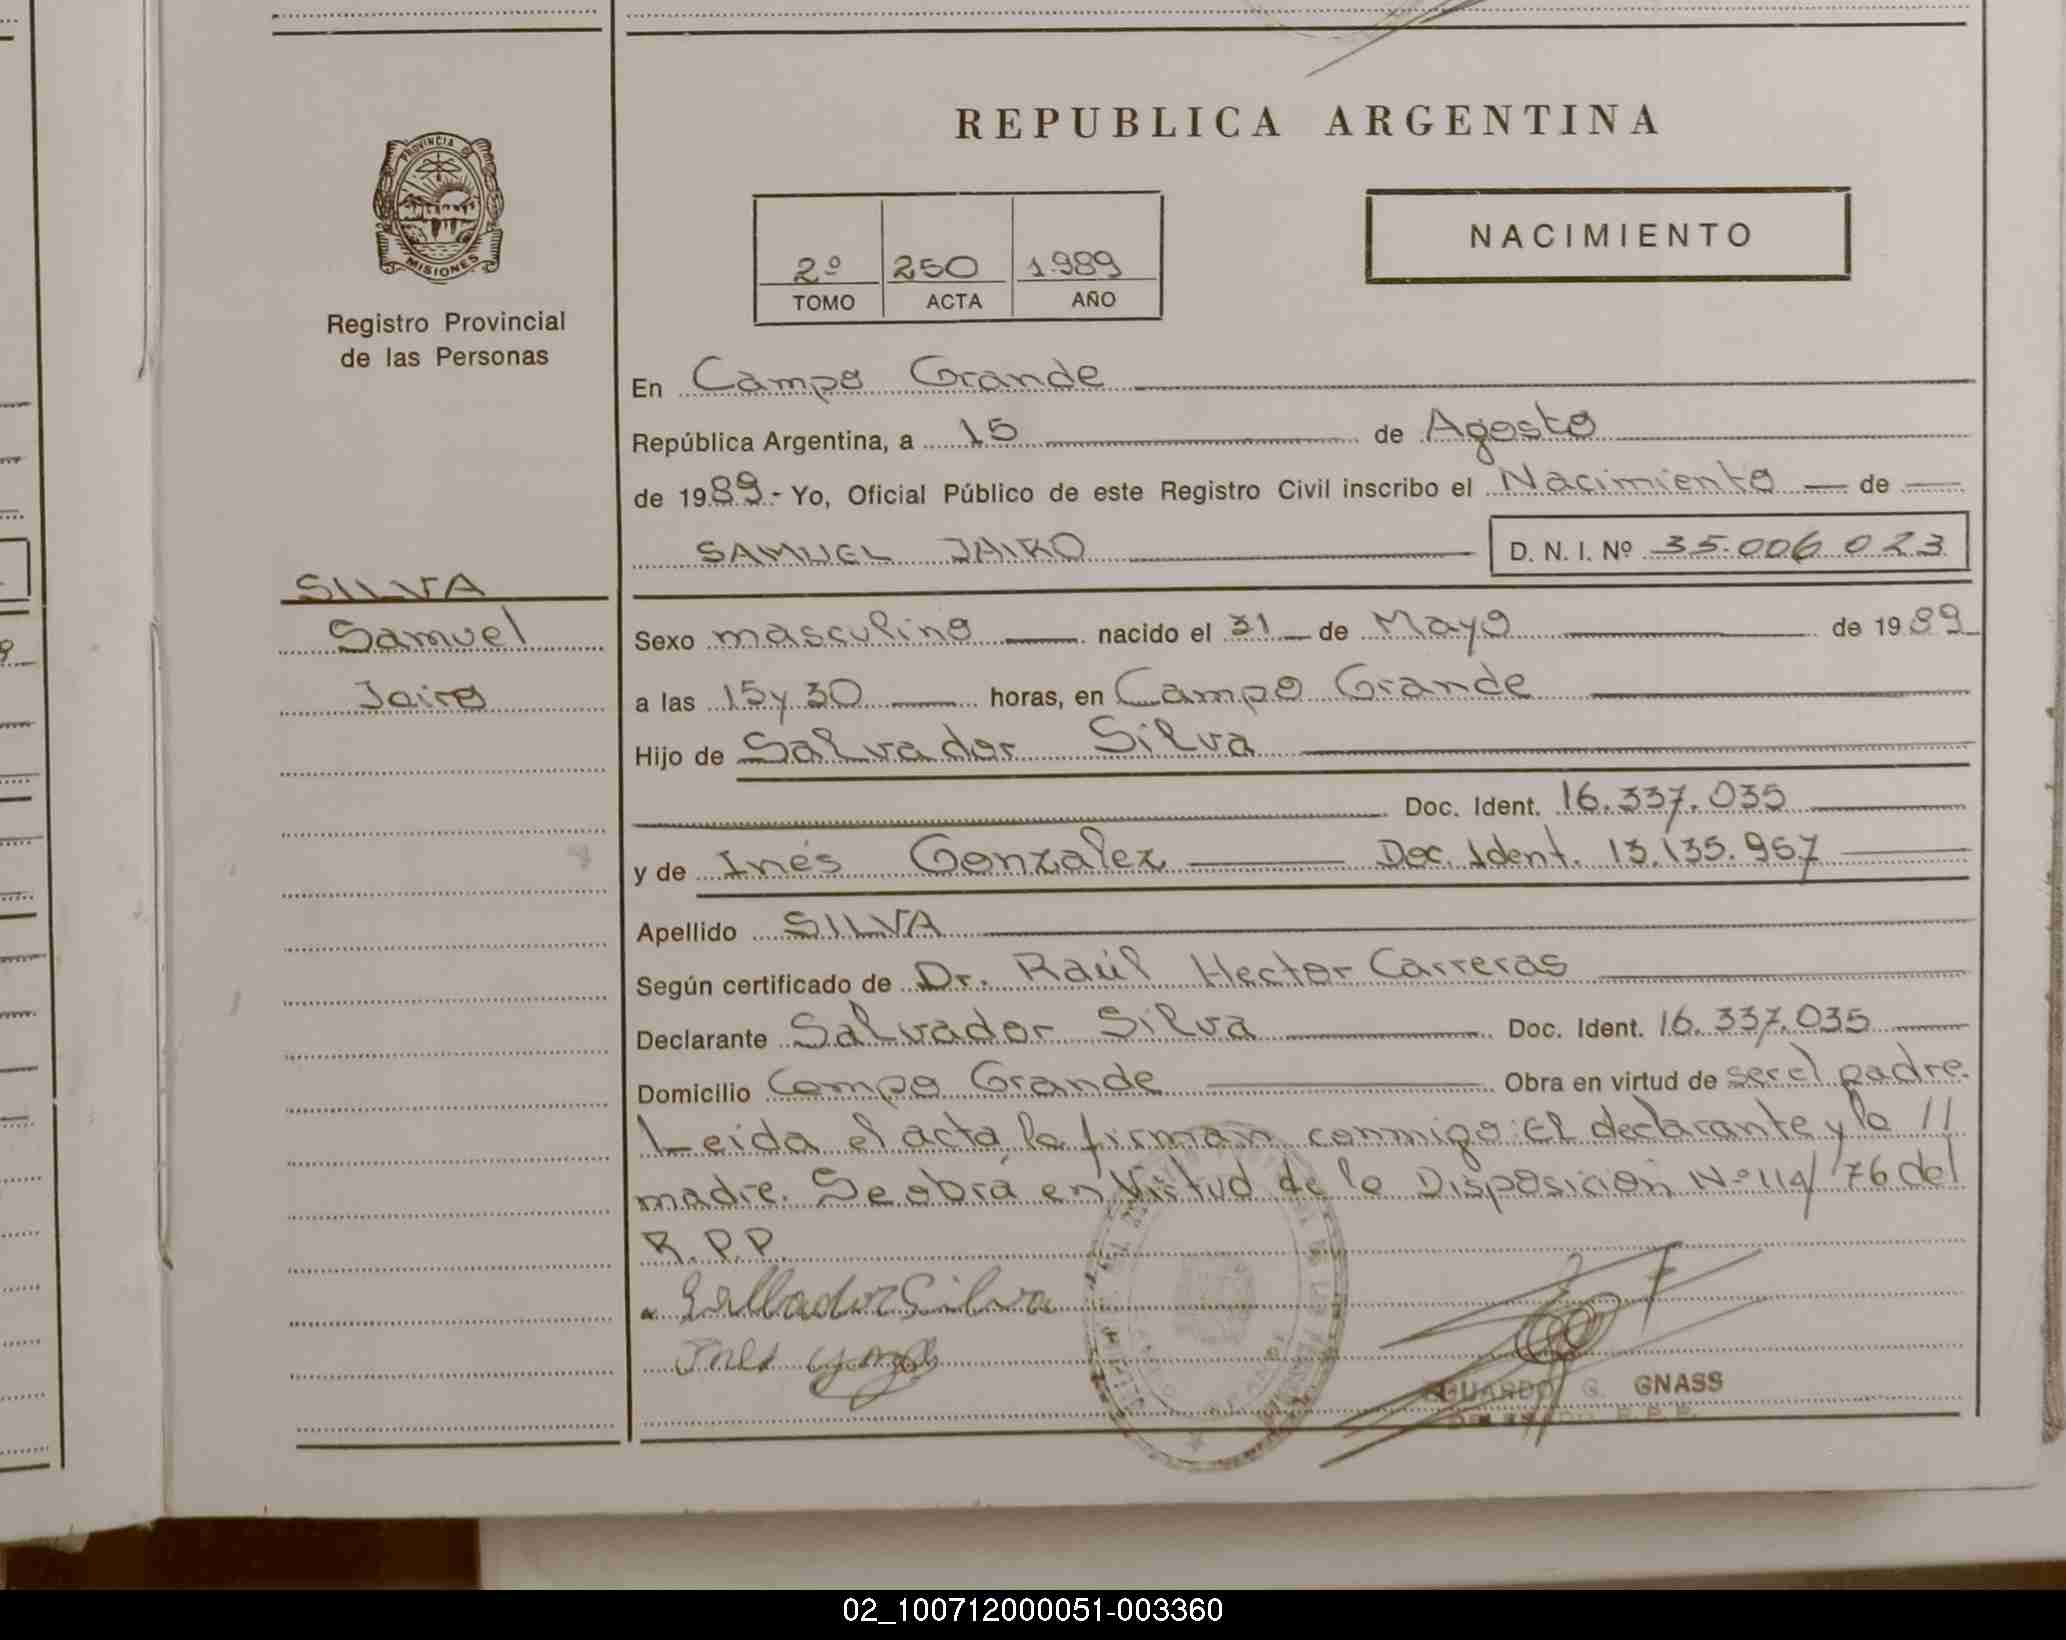 REPUBLICA ARGENTINA
PROVINCIA DE
MISIONES
Registro Provincial
de las Personas
NACIMIENTO
2º 250 1989
TOMO ACTA AÑO
En Campo Grande
República Argentina, a 15 de Agosto
de 1989.- Yo, Oficial Público de este Registro Civil inscribo el Nacimiento de
SAMUEL JAIRO D. N. I. Nº 35.006.023
SILVA
Samuel
Jairo
Sexo masculino nacido el 31 de Mayo de 1989
a las 15 y 30 horas, en Campo Grande
Hijo de Salvador Silva
Doc. Ident. 16.337.035
y de Inés Gonzalez Doc. Ident. 13.135.967
Apellido SILVA
Según certificado de Dr. Raúl Hector Carreras
Declarante Salvador Silva Doc. Ident. 16.337.035
Domicilio Campo Grande Obra en virtud de ser el padre.
Leida el acta, la firman conmigo: El declarante y la //
madre. Se obra en Virtud de la Disposición Nº 114/76 del
R.P.P.
Sallador Silva
Ines
EDUARDO G. GNASS
02_100712000051-003360